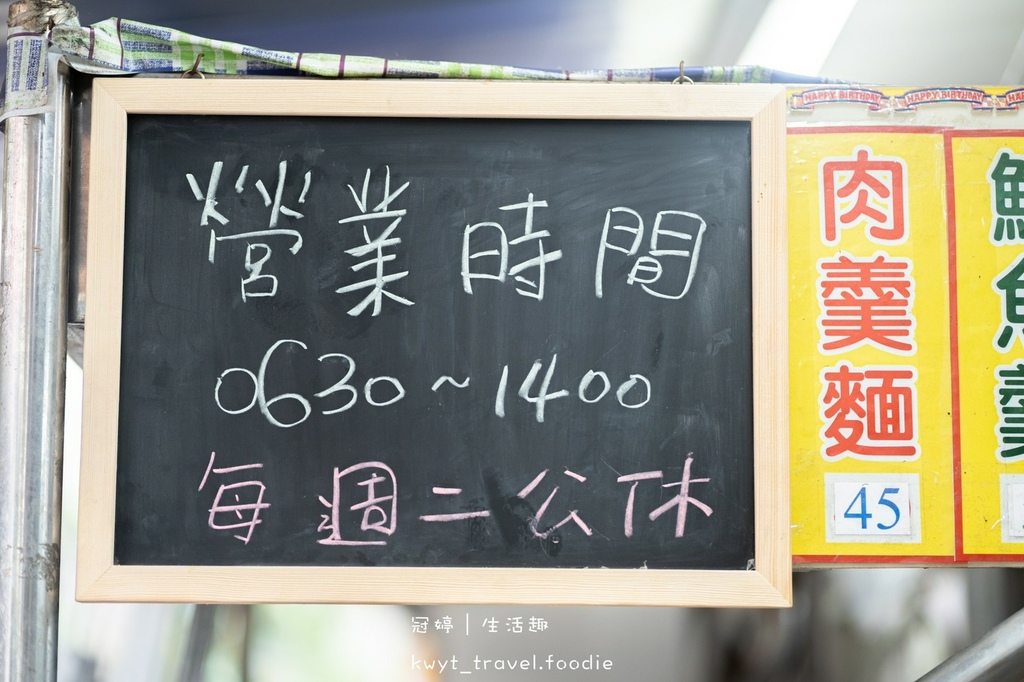 營業時間
0630~1400
每週二公休
HAPPY BIRTHDAY HAPPY BIRTHDAY
肉羹麵
45
冠婷｜生活趣
kwyt_travel.foodie